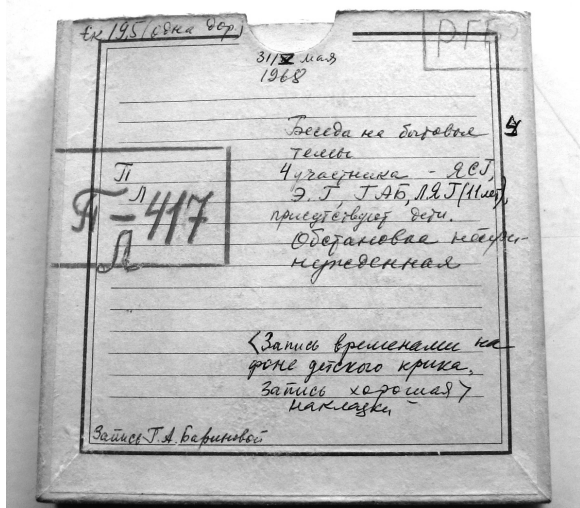 Ек 19,5 (одна дор.)
РГБ
31/V мая
1968
Беседа на бытовые
темы
4 участника - ЯСГ,
Э.Г, ГАБ, ЛЯГ (11 лет),
присутствуют дети.
Обстановка непри-
нужденная
П
Л
П-417
Л
<Запись временами на
фоне детского крика.
Запись хорошая>
накладки
Запись Г.А. Бариновой